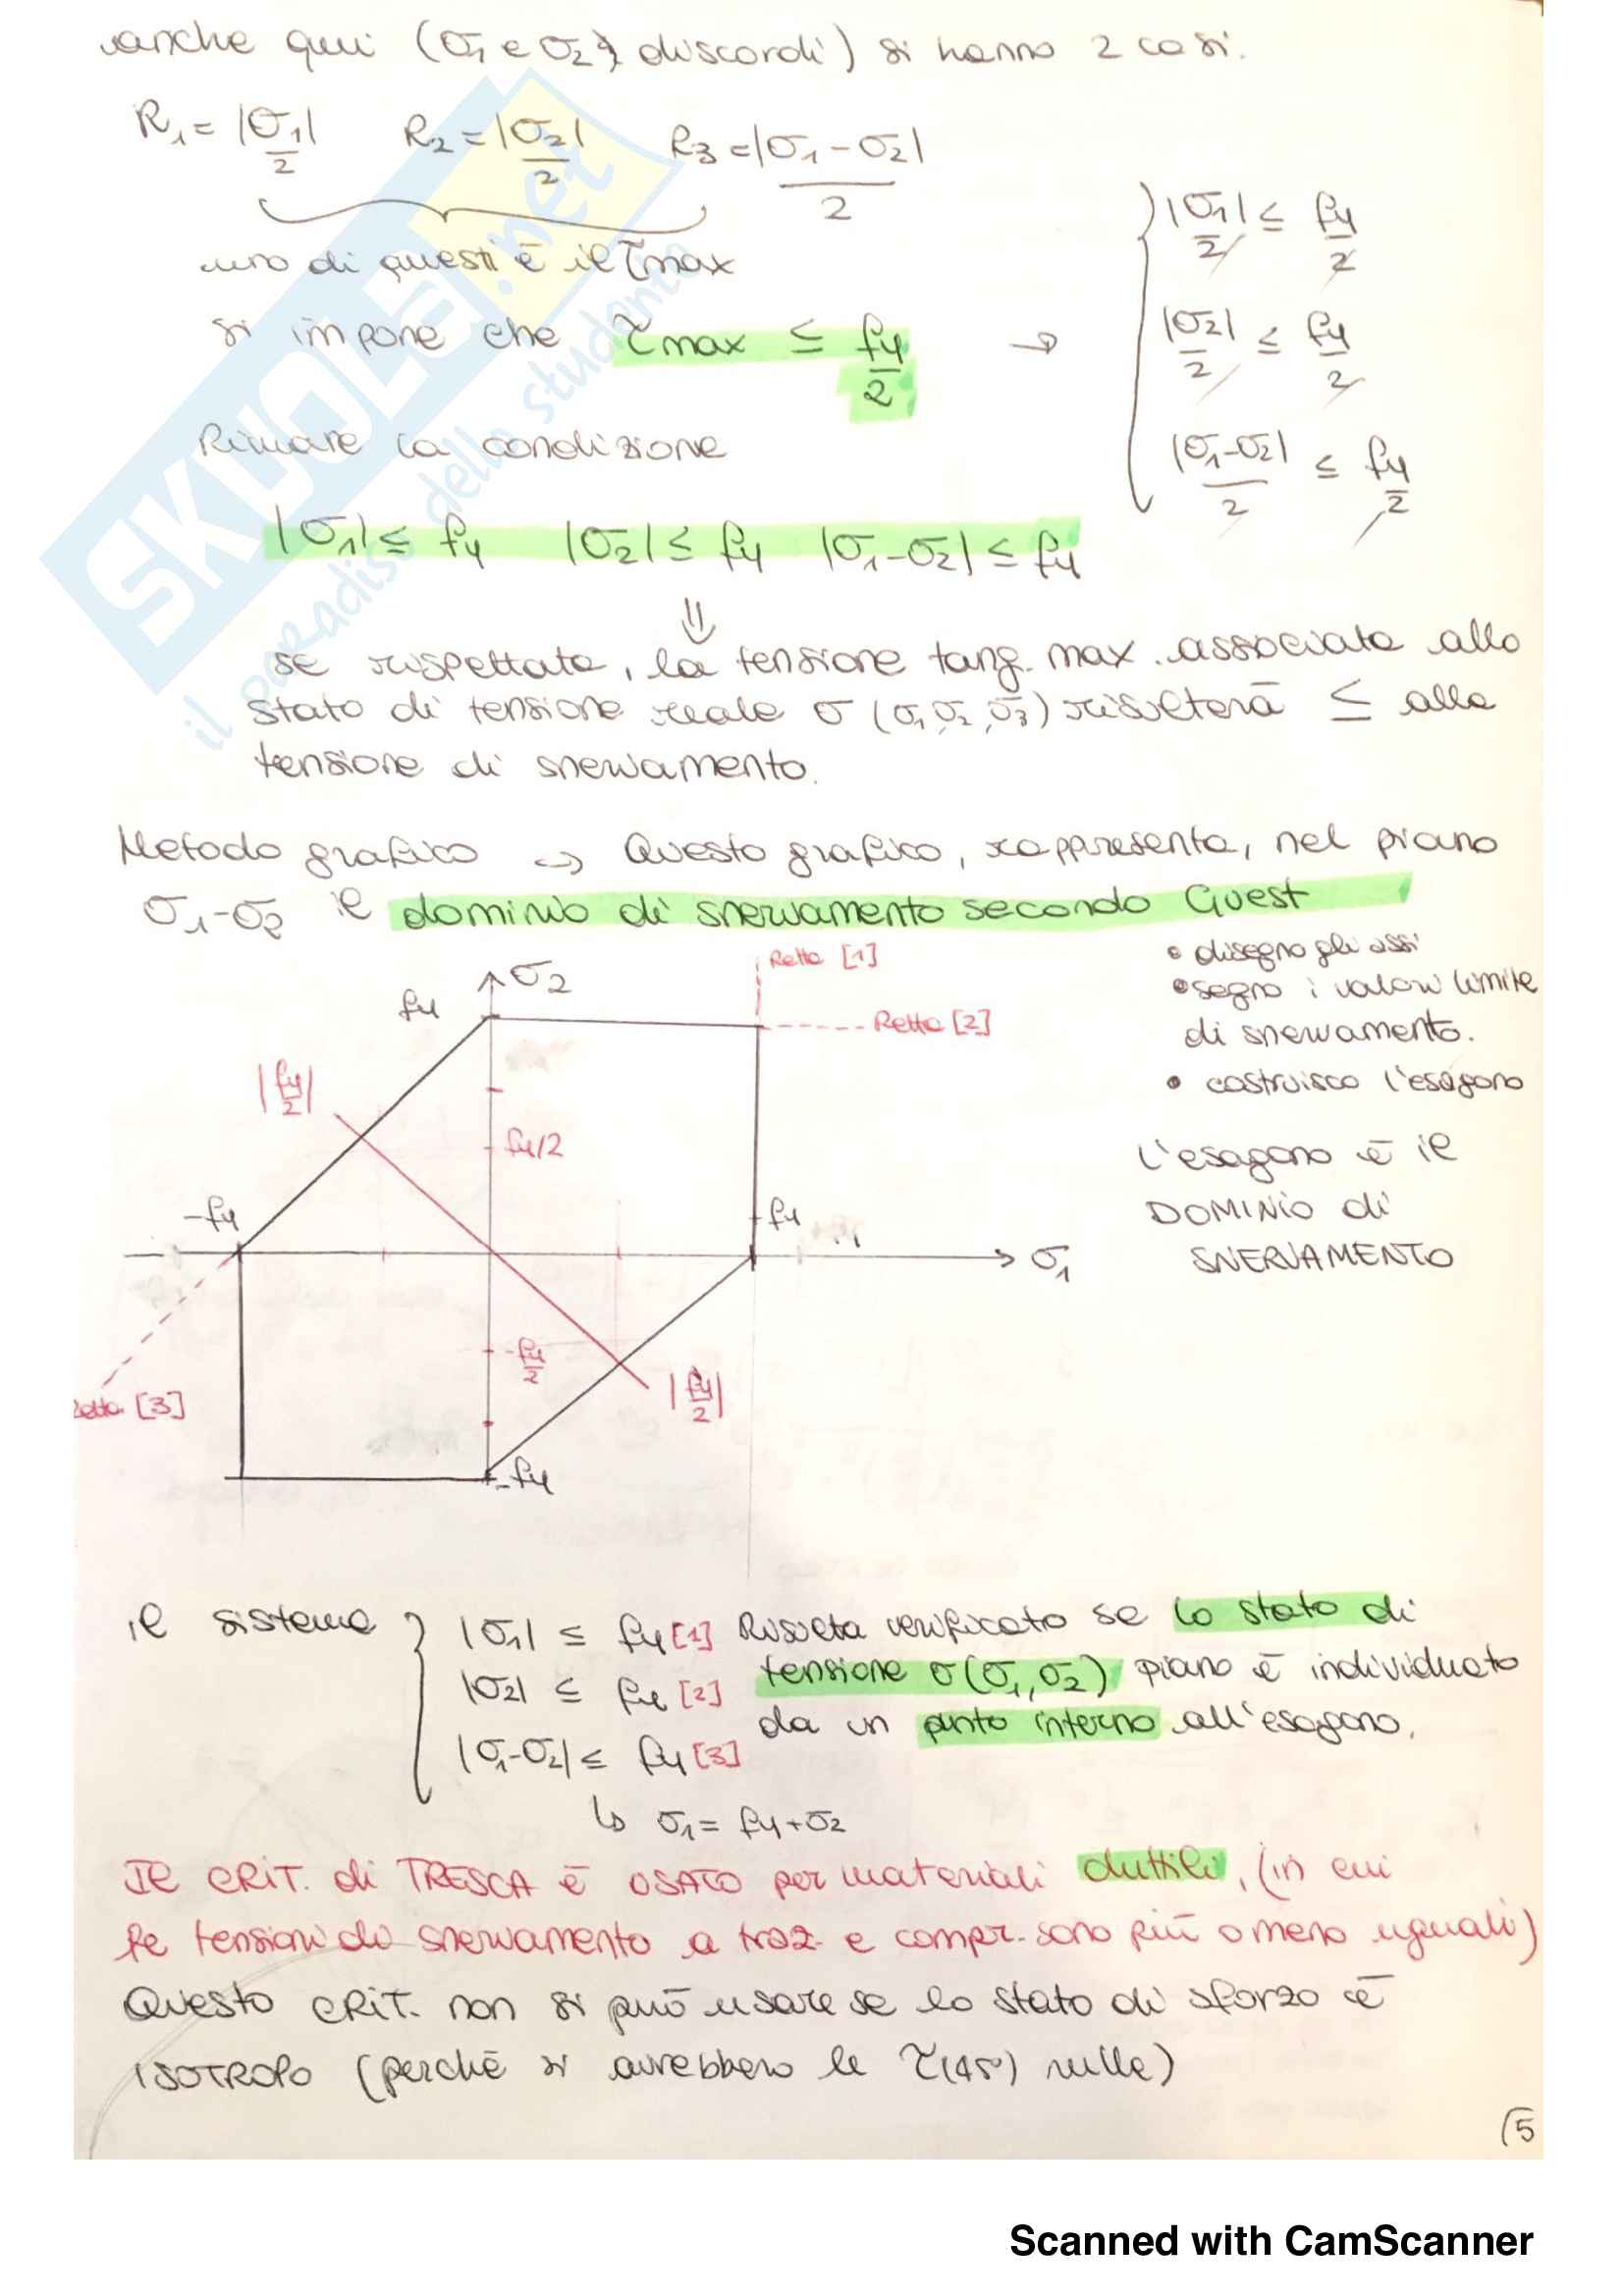 anche qui (σ1 e σ2 discordi) si hanno 2 casi.
R1 = |σ1|/2   R2 = |σ2|/2   R3 = |σ1 - σ2|/2
uno di questi è il τmax
si impone che τmax ≤ fy/2 →
|σ1|/2 ≤ fy/2
|σ2|/2 ≤ fy/2
|σ1-σ2|/2 ≤ fy/2
Rimane la condizione
|σ1| ≤ fy   |σ2| ≤ fy   |σ1-σ2| ≤ fy
⇓
se rispettata, la tensione tang. max. associata allo
stato di tensione reale σ (σ1, σ2, σ3) risulterà ≤ alla
tensione di snervamento.
Metodo grafico → Questo grafico, rappresenta, nel piano
σ1-σ2 il dominio di snervamento secondo Guest
• disegno gli assi
• segno i valori limite
di snervamento.
• costruisco l'esagono
L'esagono è il
DOMINIO di
SNERVAMENTO
Retta [1]
σ2
fy
Retta [2]
|fy/2|
fy/2
-fy
fy
σ1
-fy/2
|fy/2|
Retta [3]
-fy
il sistema
|σ1| ≤ fy [1] Risulta verificato se lo stato di
|σ2| ≤ fy [2] tensione σ(σ1, σ2) piano è individuato
|σ1-σ2| ≤ fy [3] da un punto interno all'esagono.
↳ σ1 = fy + σ2
Il CRIT. di TRESCA è USATO per materiali duttili, (in cui
le tensioni di snervamento a traz. e compr. sono più o meno uguali)
Questo CRIT. non si può usare se lo stato di sforzo è
ISOTROPO (perchè si avrebbero le τ(45°) nulle)
5
SKUOLA.net
il paradiso dello studente
Scanned with CamScanner